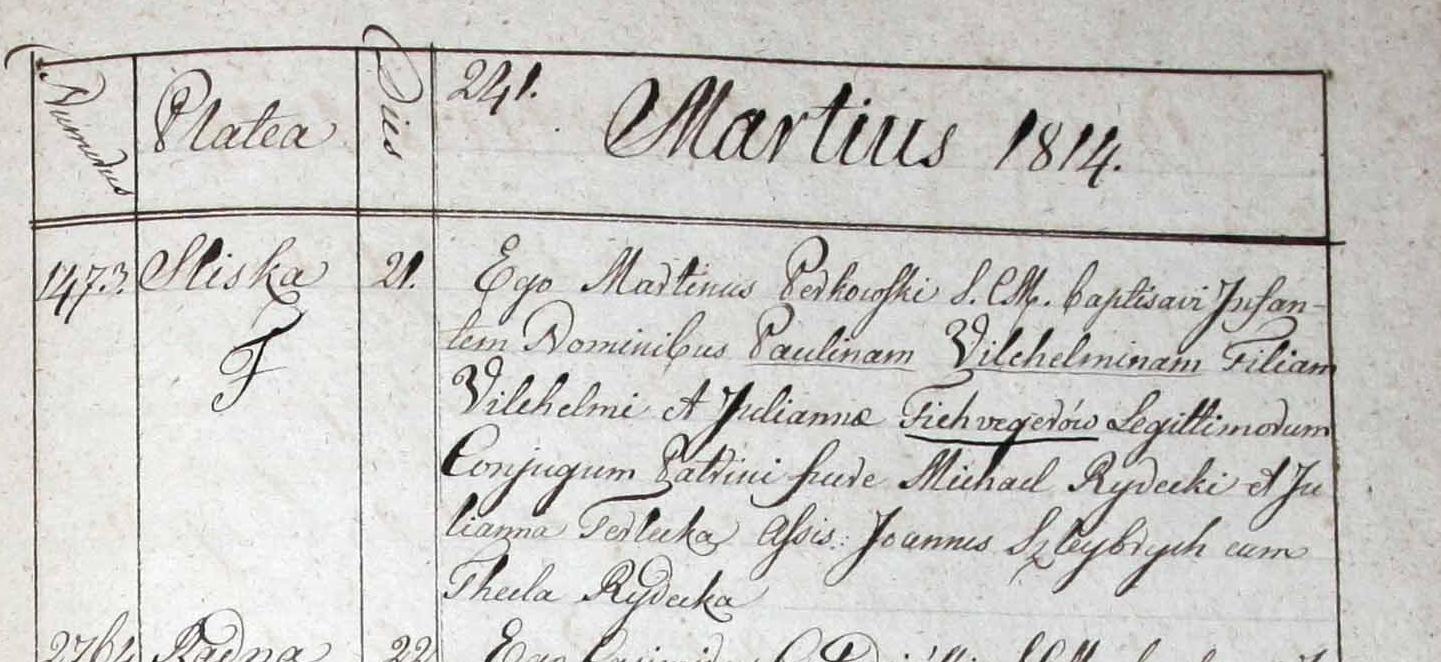 Numerus Platea Dies 241. Martius 1814.
1473. Sliska 21. Ego Martinus Perkowski S. C. M. baptisavi Infan-
F
tem Nominibus Paulinam Vilehelminam Filiam
Vilehelmi et Juliannæ Fiehvegerów Legittimorum
Conjugum Patrini fuere Michael Rydecki et Ju
lianna Terlecka Assis: Joannes Szleybrych cum
Thecla Rydecka
2764 22 Ego